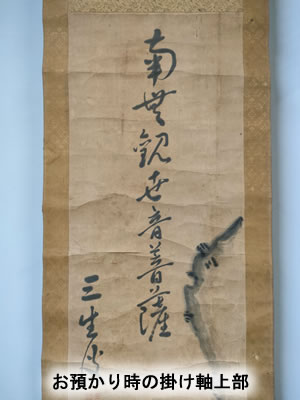 南無観世音菩薩
三生
お預かり時の掛け軸上部